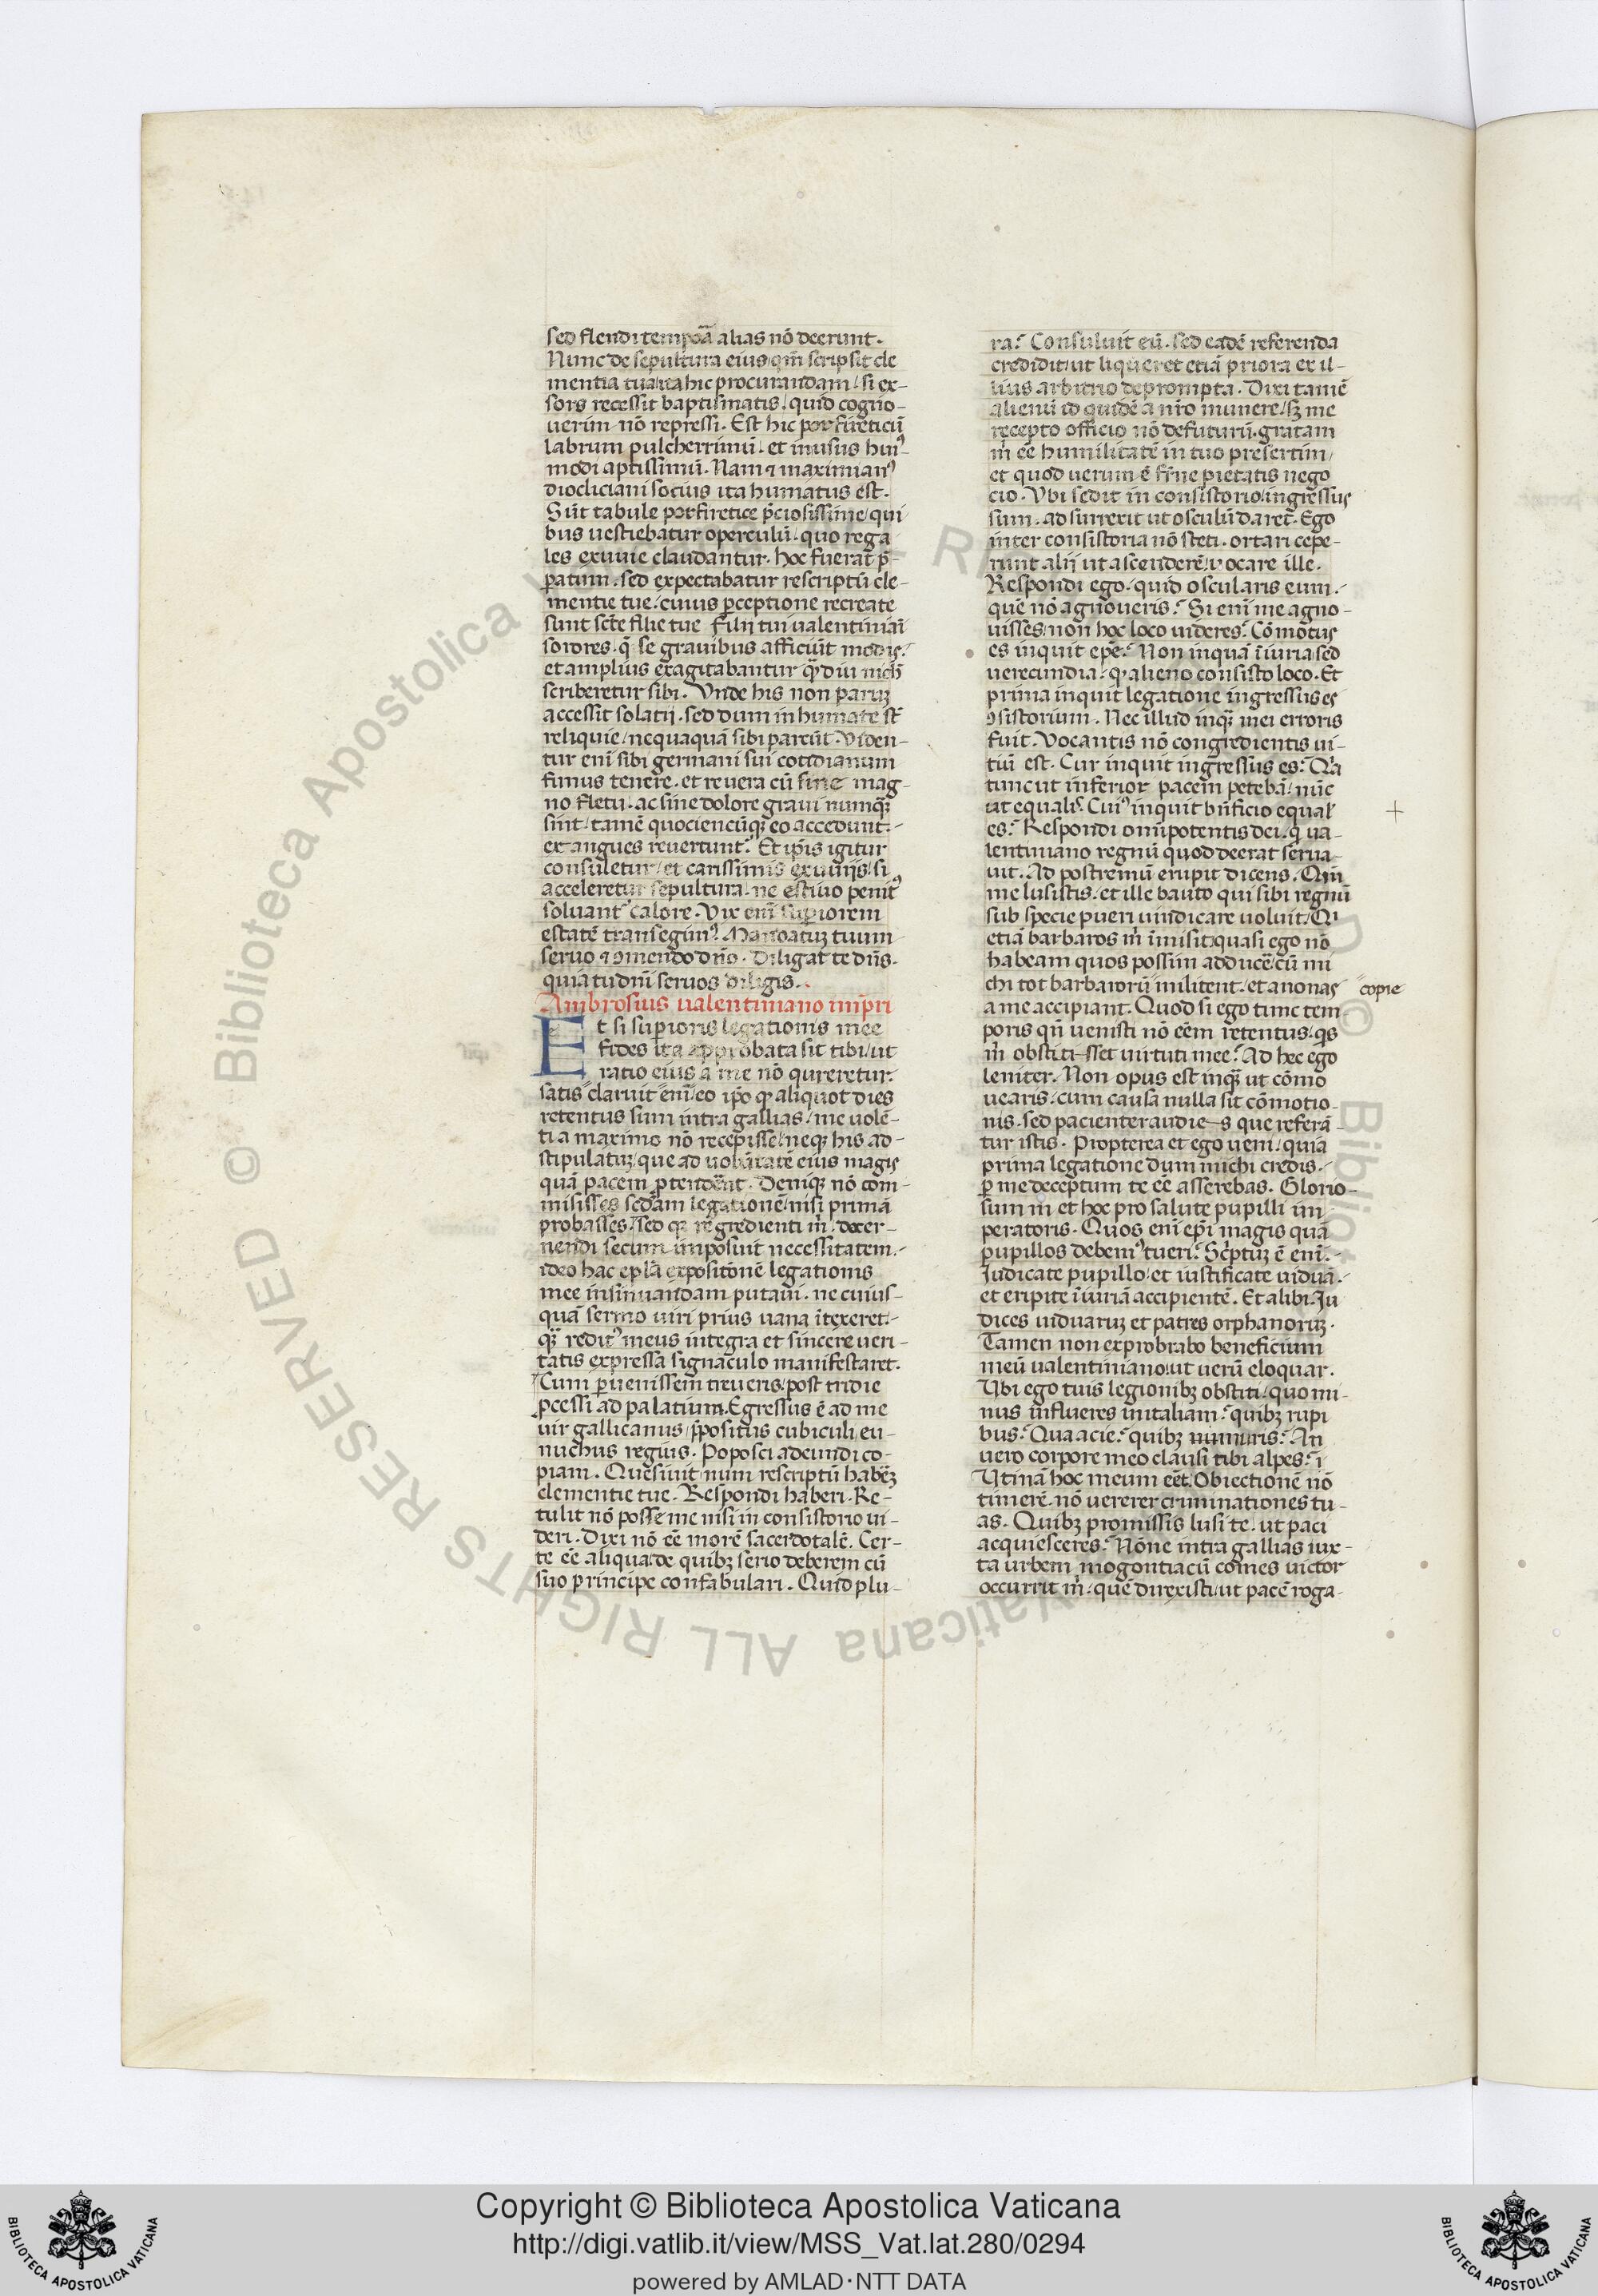 sed flendi tempora alias nō deerunt.
Nunc de sepultura eius qm̄ scripsit cle
mentia tua ita hic procurandam / si ex-
sors recessit baptismatis / quid cogno-
uerim nō repressi. Est hic porfireticū
labrum pulcherrimū. et in usus huiꝰ
modi aptissimū. Nam ⁊ maximianꝰ
diocliciani socius ita humatus est.
Sūt tabule porfiretice p̄ciosissime / qui
bus uestiebatur operculū. quo rega
les exuuie claudantur. hoc fuerat p̄
patum. sed expectabatur rescriptū cle-
mentie tue. cuius ꝑceptione recreate
sunt sc̄te filie tue filij tui ualentiniāi
sorores. q̄ se grauibus afficiūt modis.
et amplius exagitabantur q̄ diu nich̄
scriberetur sibi. Vnde his non paruꝫ
accessit solatij. sed dum inhumate st̄
reliquie / nequaquā sibi parcūt. Viden-
tur eni sibi germani sui cotidianum
funus tenere. et reuera cū sine mag-
no fletu. ac sine dolore graui numqꝫ
sint / tamē quociencūqꝫ eo accedunt.
ex angues reuertunt᷑. Et ip̄is igitur
consuletur / et carissimis exuuijs / si
acceleretur sepultura. ne estiuo penitꝰ
soluant᷑ calore. Vix eni supiorem
estatē transegimꝰ. Mandatuꝫ tuum
seruo ⁊ ↄmendo dn̄o. Diligat te dn̄s.
quia tu dn̄i seruos diligis.
Ambrosius ualentiniano imp̄ri
Et si supioris legationis mee
fides ita approbata sit tibi / ut
ratio eius a me nō qureretur.
satis claruit eni eo ip̄o ꝙ aliquot dies
retentus sum intra gallias / me uolē-
ti a maximo nō recepisse / neqꝫ his ad-
stipulatuꝫ que ad uolūtatē eius magis
quā pacem ꝑtendēnt. Deniqꝫ nō com-
misisses sedam legationē / nisi primā
probasses / sed qꝫ regredienti m̄ decer-
nendi secum imposuit necessitatem.
ideo hac ep̄la expositōnē legationis
mee insinuandam putaui. ne cuius-
quā sermo uiri prius uana ītexeret.
qꝫ reditꝰ meus integra et sincere ueri-
tatis expressa signaculo manifestaret.
Cum ꝑuenissem treueris / post tridie
ꝓcessi ad palatium. Egressus ē ad me
uir gallicanus / p̄positus cubiculi / eu-
nuchus regius. Poposci adeundi co-
piam. Quesiuit num rescriptū habeꝫ
clementie tue. Respondi haberi. Re-
tulit nō posse me nisi in consistorio ui-
deri. Dixi nō eē morē sacerdotalē. Cer-
te eē aliqua de quibꝫ serio deberem cū
suo principe confabulari. Quid plu-
ra? Consuluit eū. sed eadē referenda
credidit / ut liqueret etiā priora ex il-
lius arbitrio deprompta. Dixi tamē
alienū id quidē a nr̄o munere / sꝫ me
recepto officio nō defuturū. gratam
m̄ eē humilitatē in tuo presertim /
et quod uerum ē fr̄ne pietatis nego
cio. Vbi sedit in consistorio / ingressus
sum. ad surrexit ut osculū daret. Ego
inter consistoria nō steti. ortari cepe-
runt alij ut ascenderē / uocare ille.
Respondi ego. quid oscularis eum.
quē nō agnoueris? Si eni me agno-
uisses / non hoc loco uideres? Cōmotus
es inquit ep̄e? Non inquā īiuria / sed
uerecundia. ꝙ alieno consisto loco. Et
prima inquit legatione ingressus es
ↄsistorium. Nec illud inqꝫ mei erroris
fuit. Vocantis nō congredientis ui-
tiū est. Cur inquit ingressus es? Qa
tunc ut inferior pacem petebā / nūc
ut equalis. Cuiꝰ inquit bn̄ficio equal'
es? Respondi omīpotentis dei. q̄ ua-
lentiniano regnū quod deerat serua-
uit. Ad postremū erupit dicens. Qm̄
me lusistis. et ille bauto qui sibi regnū
sub specie pueri uindicare uoluit / Qi
etiā barbaros m̄ īmisit / quasi ego nō
habeam quos possim adducē / cū mi
chi tot barbarorū militent. et anonas
copie
a me accipiant. Quod si ego tunc tem
poris qn̄ uenisti nō eēm retentus / qs
m̄ obstitisset uirtuti mee? Ad hec ego
leniter. Non opus est inqꝫ ut cōmo
uearis / cum causa nulla sit cōmotio-
nis. sed pacienter audies que referā-
tur istis. Propterea et ego ueni / quia
prima legatione dum michi credis.
ꝑ me deceptum te eē asserebas. Glorio-
sum m̄ et hoc pro salute pupilli im-
peratoris. Quos eni ep̄i magis quā
pupillos debemꝰ tueri? Sc̄ptuꝫ ē eni.
Iudicate pupillo / et iustificate uiduā.
et eripite īiuriā accipientē. Et alibi. Iu
dices uiduaruꝫ et patres orphanoruꝫ.
Tamen non exprobrabo beneficium
meū ualentiniano / ut uerū eloquar.
Vbi ego tuis legionibꝫ obstiti / quo mi-
nus influeres initaliam? quibꝫ rupi
bus? Qua acie? quibꝫ numeris? An
uero corpore meo clausi tibi alpes? ī
Vtinā hoc meum eēt. Obiectionē nō
timerē. nō uererer criminationes tu-
as. Quibꝫ promissis lusi te. ut paci
acquiesceres? Nōne intra gallias iux-
ta urbem mogontiacū comes uictor
occurrit m̄. quē direxisti / ut pacē roga-
Copyright © Biblioteca Apostolica Vaticana
http://digi.vatlib.it/view/MSS_Vat.lat.280/0294
powered by AMLAD·NTT DATA